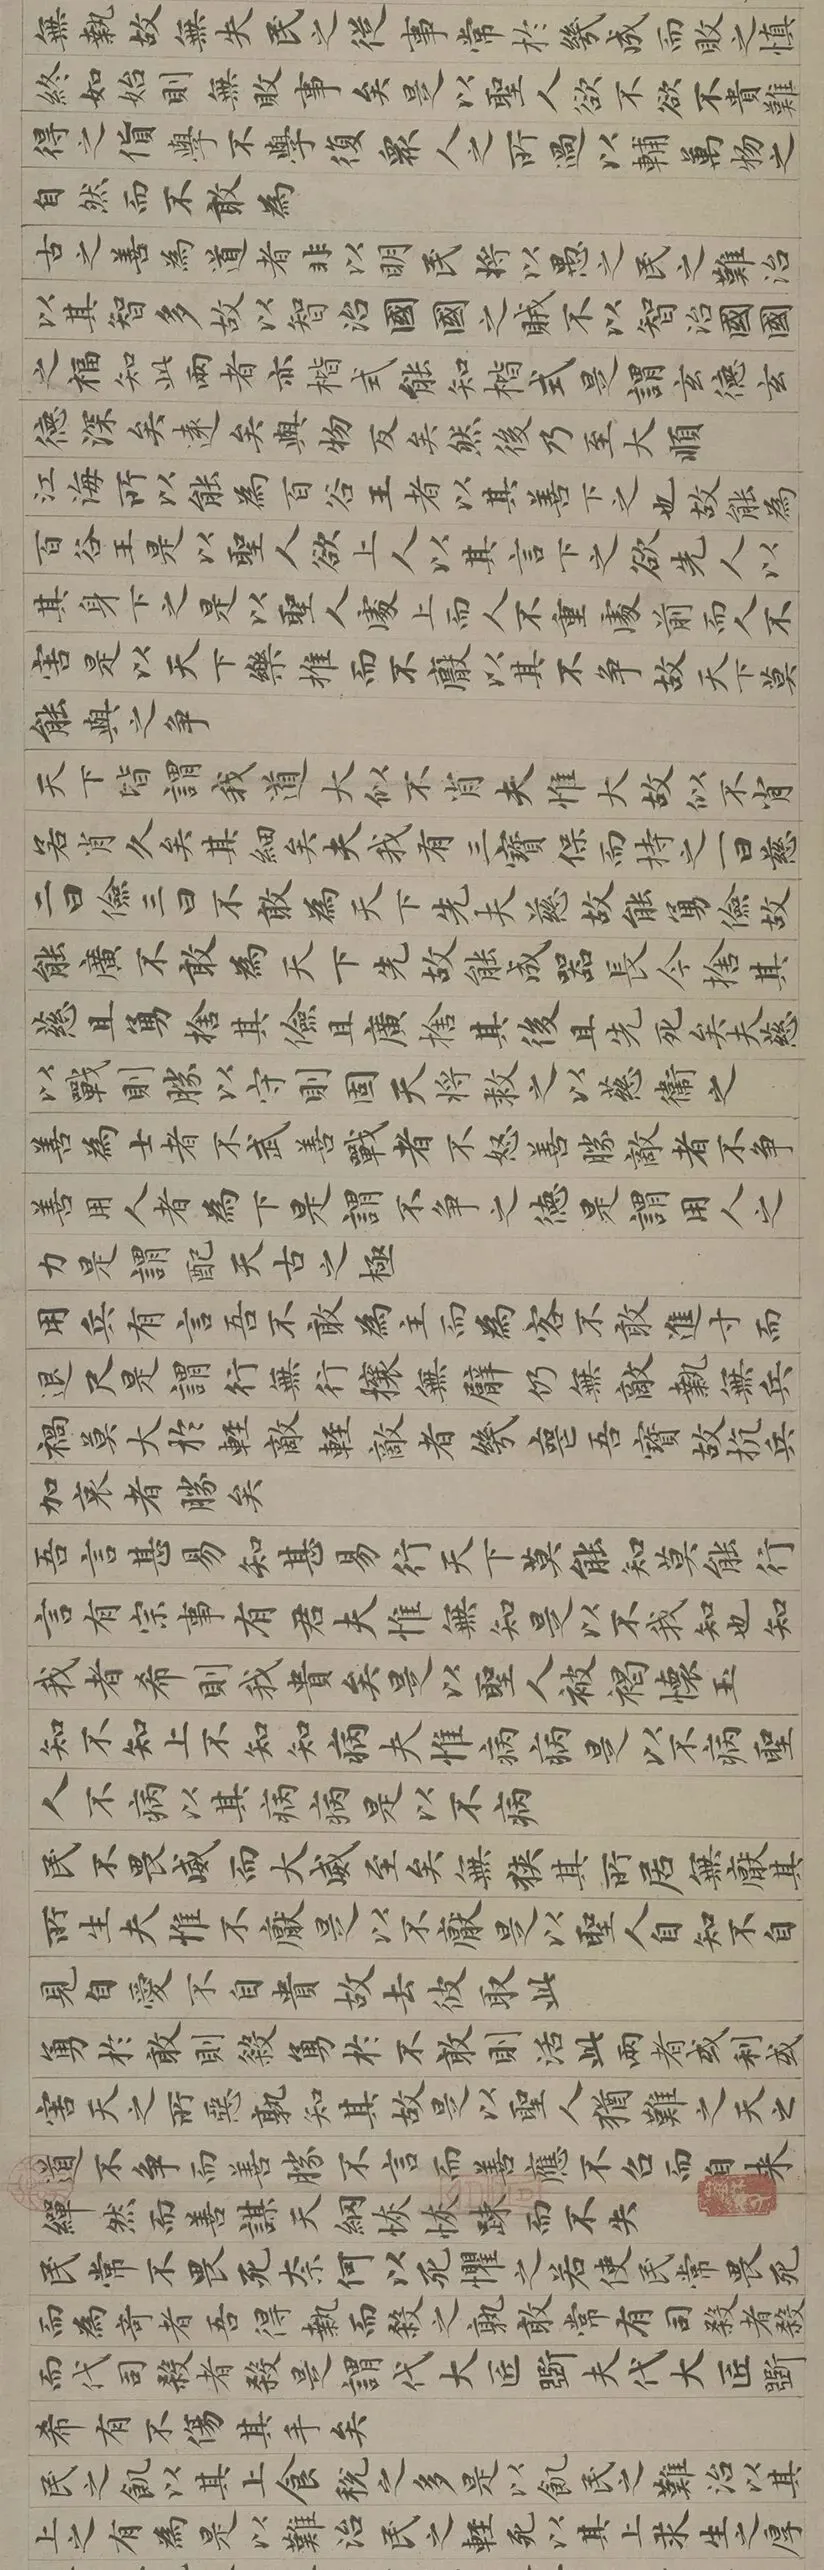 無執故無失民之從事常於幾成而敗之慎
終如始則無敗事矣是以聖人欲不欲不貴難
得之貨學不學復衆人之所過以輔萬物之
自然而不敢為
古之善為道者非以明民將以愚之民之難治
以其智多故以智治國國之賊不以智治國國
之福知此兩者亦楷式能知楷式是謂玄德玄
德深矣遠矣與物反矣然後乃至大順
江海所以能為百谷王者以其善下之也故能為
百谷王是以聖人欲上人以其言下之欲先人以
其身下之是以聖人處上而人不重處前而人不
害是以天下樂推而不厭以其不爭故天下莫
能與之爭
天下皆謂我道大似不肖夫惟大故似不肖
若肖久矣其細矣夫我有三寶保而持之一曰慈
二曰儉三曰不敢為天下先夫慈故能勇儉故
能廣不敢為天下先故能成器長今捨其
慈且勇捨其儉且廣捨其後且先死矣夫慈
以戰則勝以守則固天將救之以慈衛之
善為士者不武善戰者不怒善勝敵者不爭
善用人者為下是謂不爭之德是謂用人之
力是謂配天古之極
用兵有言吾不敢為主而為客不敢進寸而
退尺是謂行無行攘無臂仍無敵執無兵
禍莫大於輕敵輕敵者幾亡吾寶故抗兵
加哀者勝矣
吾言甚易知甚易行天下莫能知莫能行
言有宗事有君夫惟無知是以不我知也知
我者希則我貴矣是以聖人被褐懷玉
知不知上不知知病夫惟病病是以不病聖
人不病以其病病是以不病
民不畏威而大威至矣無狹其所居無厭其
所生夫惟不厭是以不厭是以聖人自知不自
見自愛不自貴故去彼取此
勇於敢則殺勇於不敢則活此兩者或利或
害天之所惡孰知其故是以聖人猶難之天之
道不爭而善勝不言而善應不召而自来
繟然而善謀天綱恢恢踈而不失
民常不畏死柰何以死懼之若使民常畏死
而為奇者吾得執而殺之孰敢常有司殺者殺
而代司殺者殺是謂代大匠斲夫代大匠斲
希有不傷其手矣
民之飢以其上食稅之多是以飢民之難治以其
上之有為是以難治民之輕死以其上求生之厚